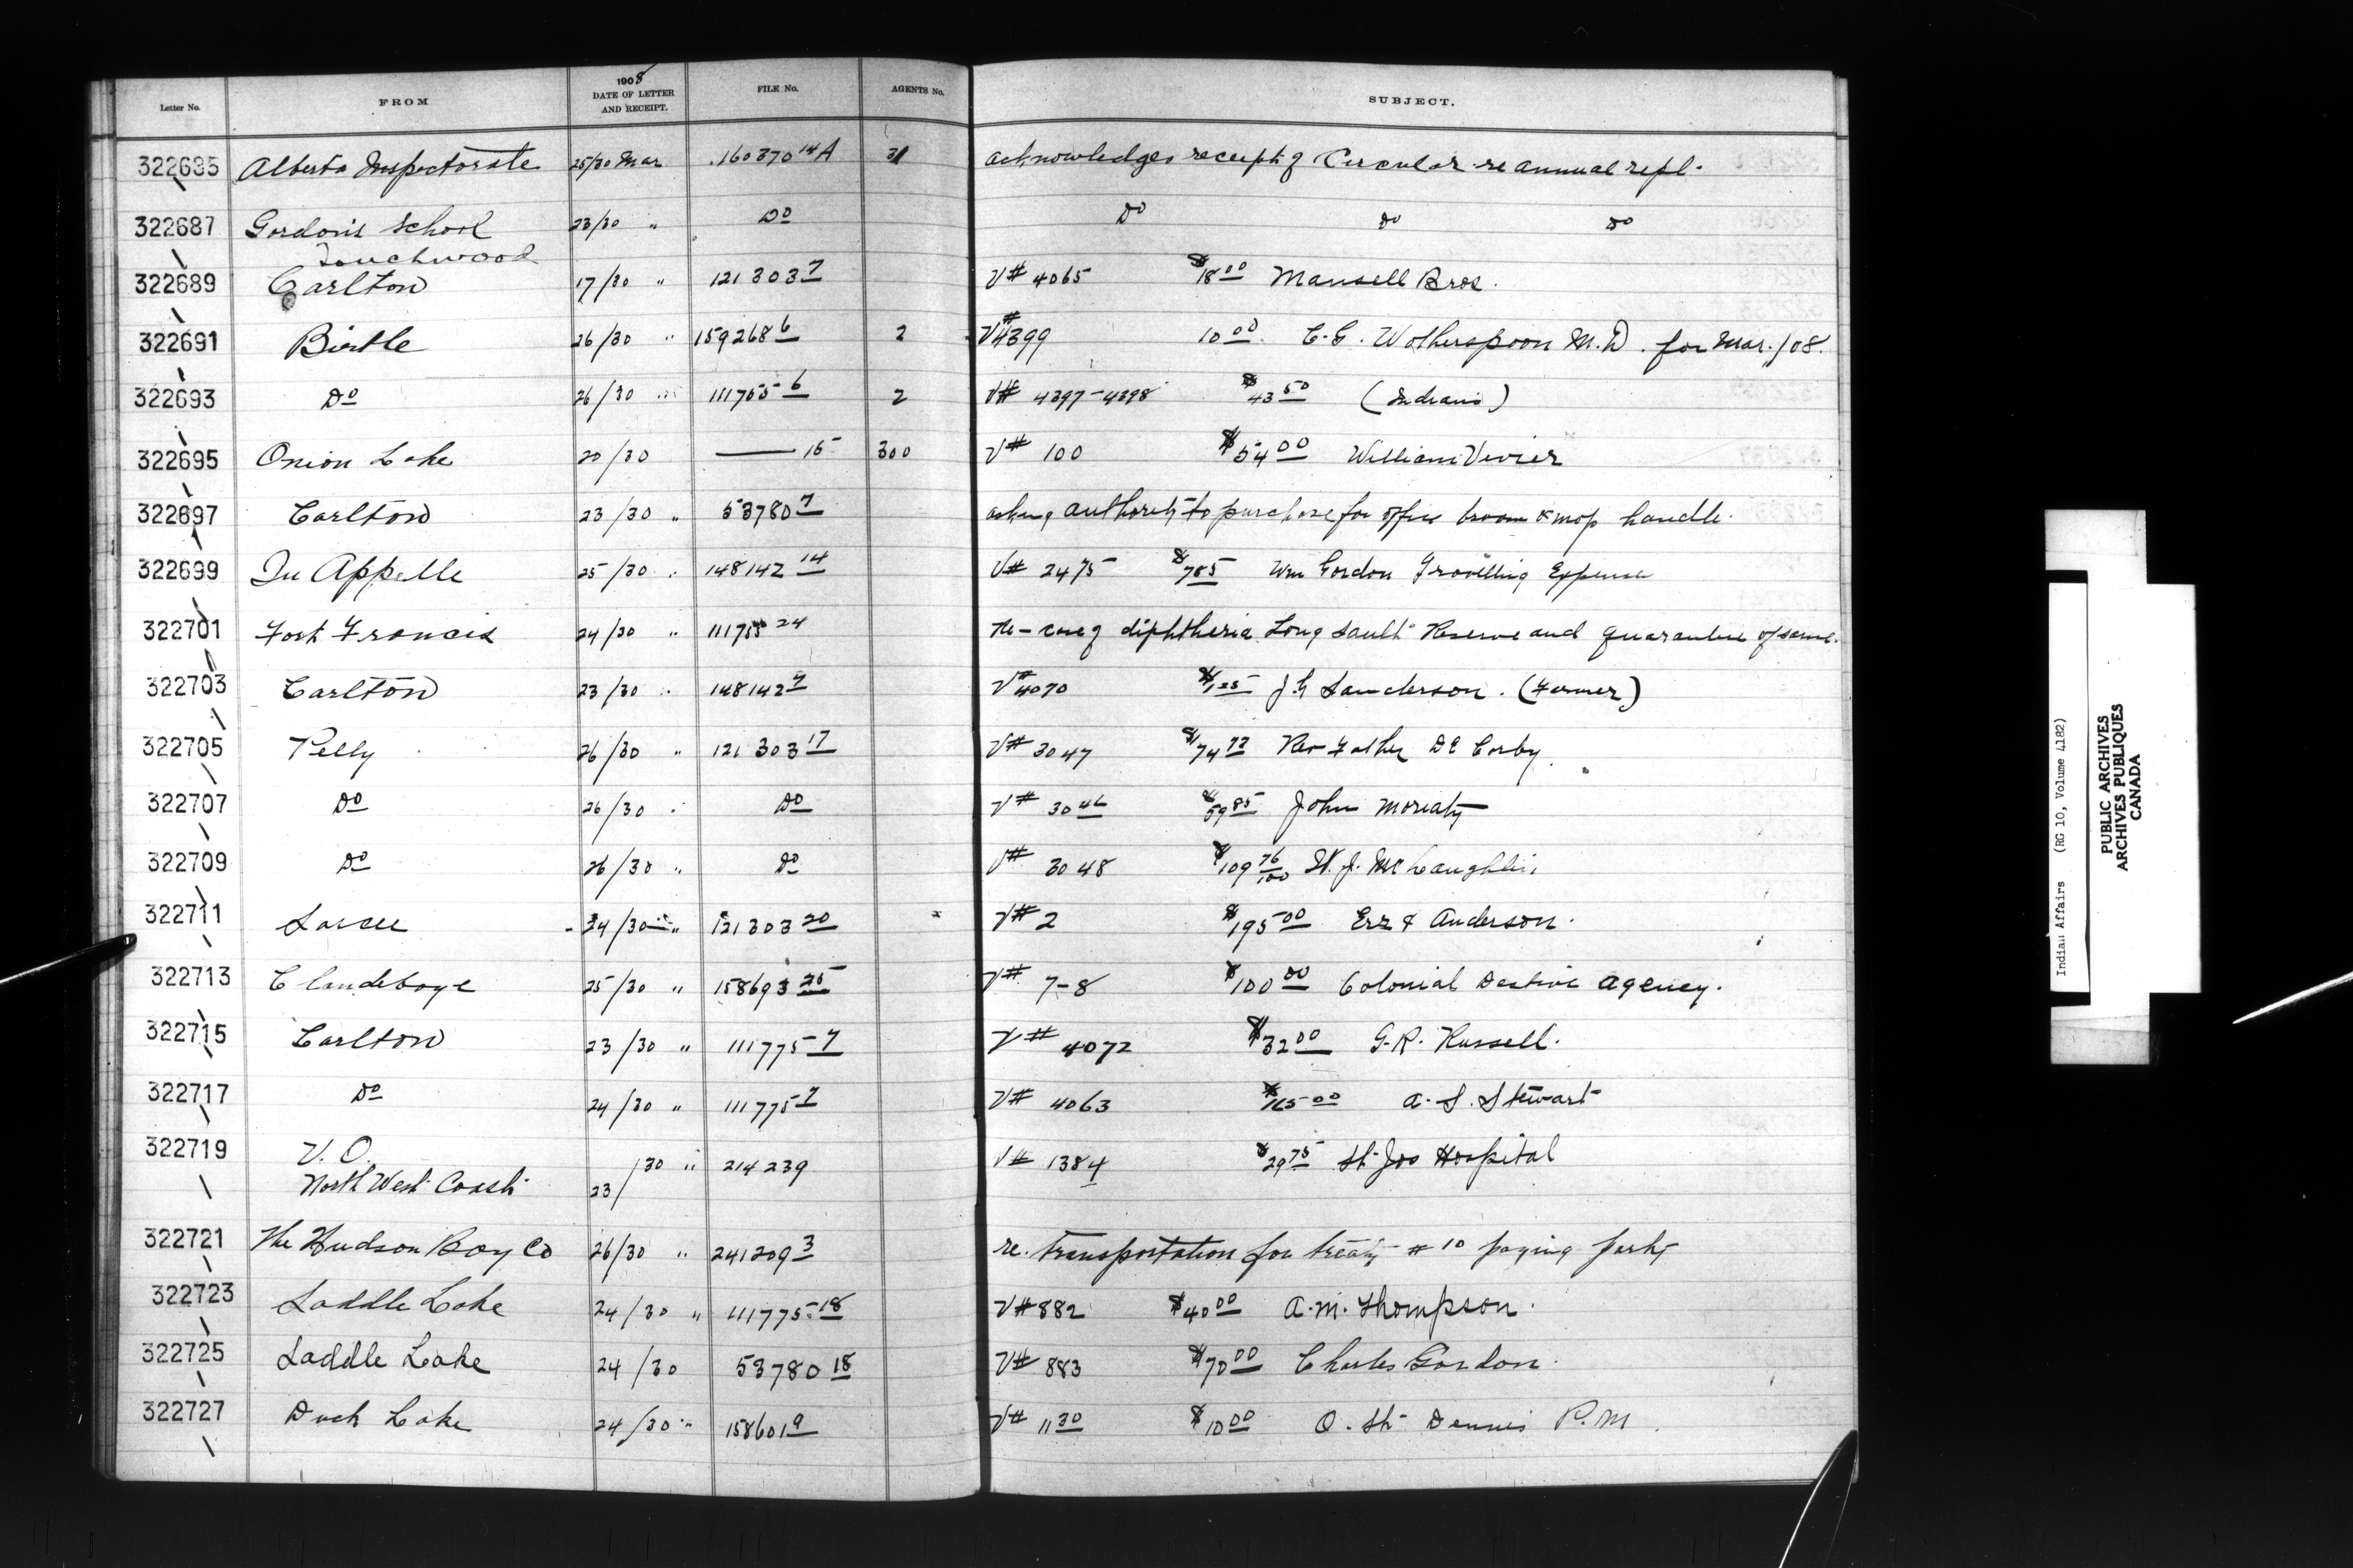 Letter No. FROM 1908 DATE OF LETTER AND RECEIPT. FILE No. AGENTS No. SUBJECT.
322685 Alberta Inspectorate 25/30 Mar 160370 14A 31 acknowledges receipt of Circular re annual rept.
322687 Gordon's School 23/30 " Do Do Do Do
Touchwood
322689 Carlton 17/30 " 121303 7 V# 4065 $18 00 Mansell Bros.
322691 Birtle 26/30 " 159268 6 2 V# 4399 10 00 C. E. Wotherspoon M.D. for Mar./08.
322693 Do 26/30 " 111755 6 2 V# 4397-4398 $43 50 (Indians)
322695 Onion Lake 20/30 — 15 300 V# 100 $54 00 William Vivier
322697 Carlton 23/30 " 53780 7 asking authority to purchase for office broom & mop handle.
322699 Qu Appelle 25/30 " 148142 14 V# 2475 $7 85 Wm Gordon Travelling Expense
322701 Fort Francis 24/30 " 111755 24 Re - case of diphtheria Long Sault Reserve and quarantine of same.
322703 Carlton 23/30 " 148142 7 V# 4070 $1 25 J. H Sanderson. (Farmer)
322705 Pelly 26/30 " 121303 17 V# 3047 $74 72 Rev Father De Corby.
322707 Do 26/30 " Do V# 3046 $59 85 John Moriaty
322709 Do 26/30 " Do V# 3048 $109 76/100 McLaughlin
322711 Sarcee 24/30 " 121303 20 V# 2 $195 00 & Anderson.
322713 Clandeboye 25/30 " 158693 25 V# 7-8 $100 00 Colonial Agency.
322715 Carlton 23/30 " 111775 7 V# 4072 $32 00 G. R. Russell.
322717 Do 24/30 " 111775 7 V# 4063 00 A. S. Stewart
322719 V. O. 23/30 " 214239 V# 1384 $29 75 St Jos Hospital
North West Coast
322721 The Hudson Bay Co 26/30 " 241209 3 re. transportation for treaty #10 paying party
322723 Saddle Lake 24/30 " 111775 18 V# 882 $40 00 A. M. Thompson.
322725 Saddle Lake 24/30 53780 18 V# 883 $70 00 Charles Gordon.
322727 Duck Lake 24/30 " 158601 9 V# 1130 $10 00 O. St Dennis P.M.
Indian Affairs (RG 10, Volume 4182)
PUBLIC ARCHIVES
ARCHIVES PUBLIQUES
CANADA